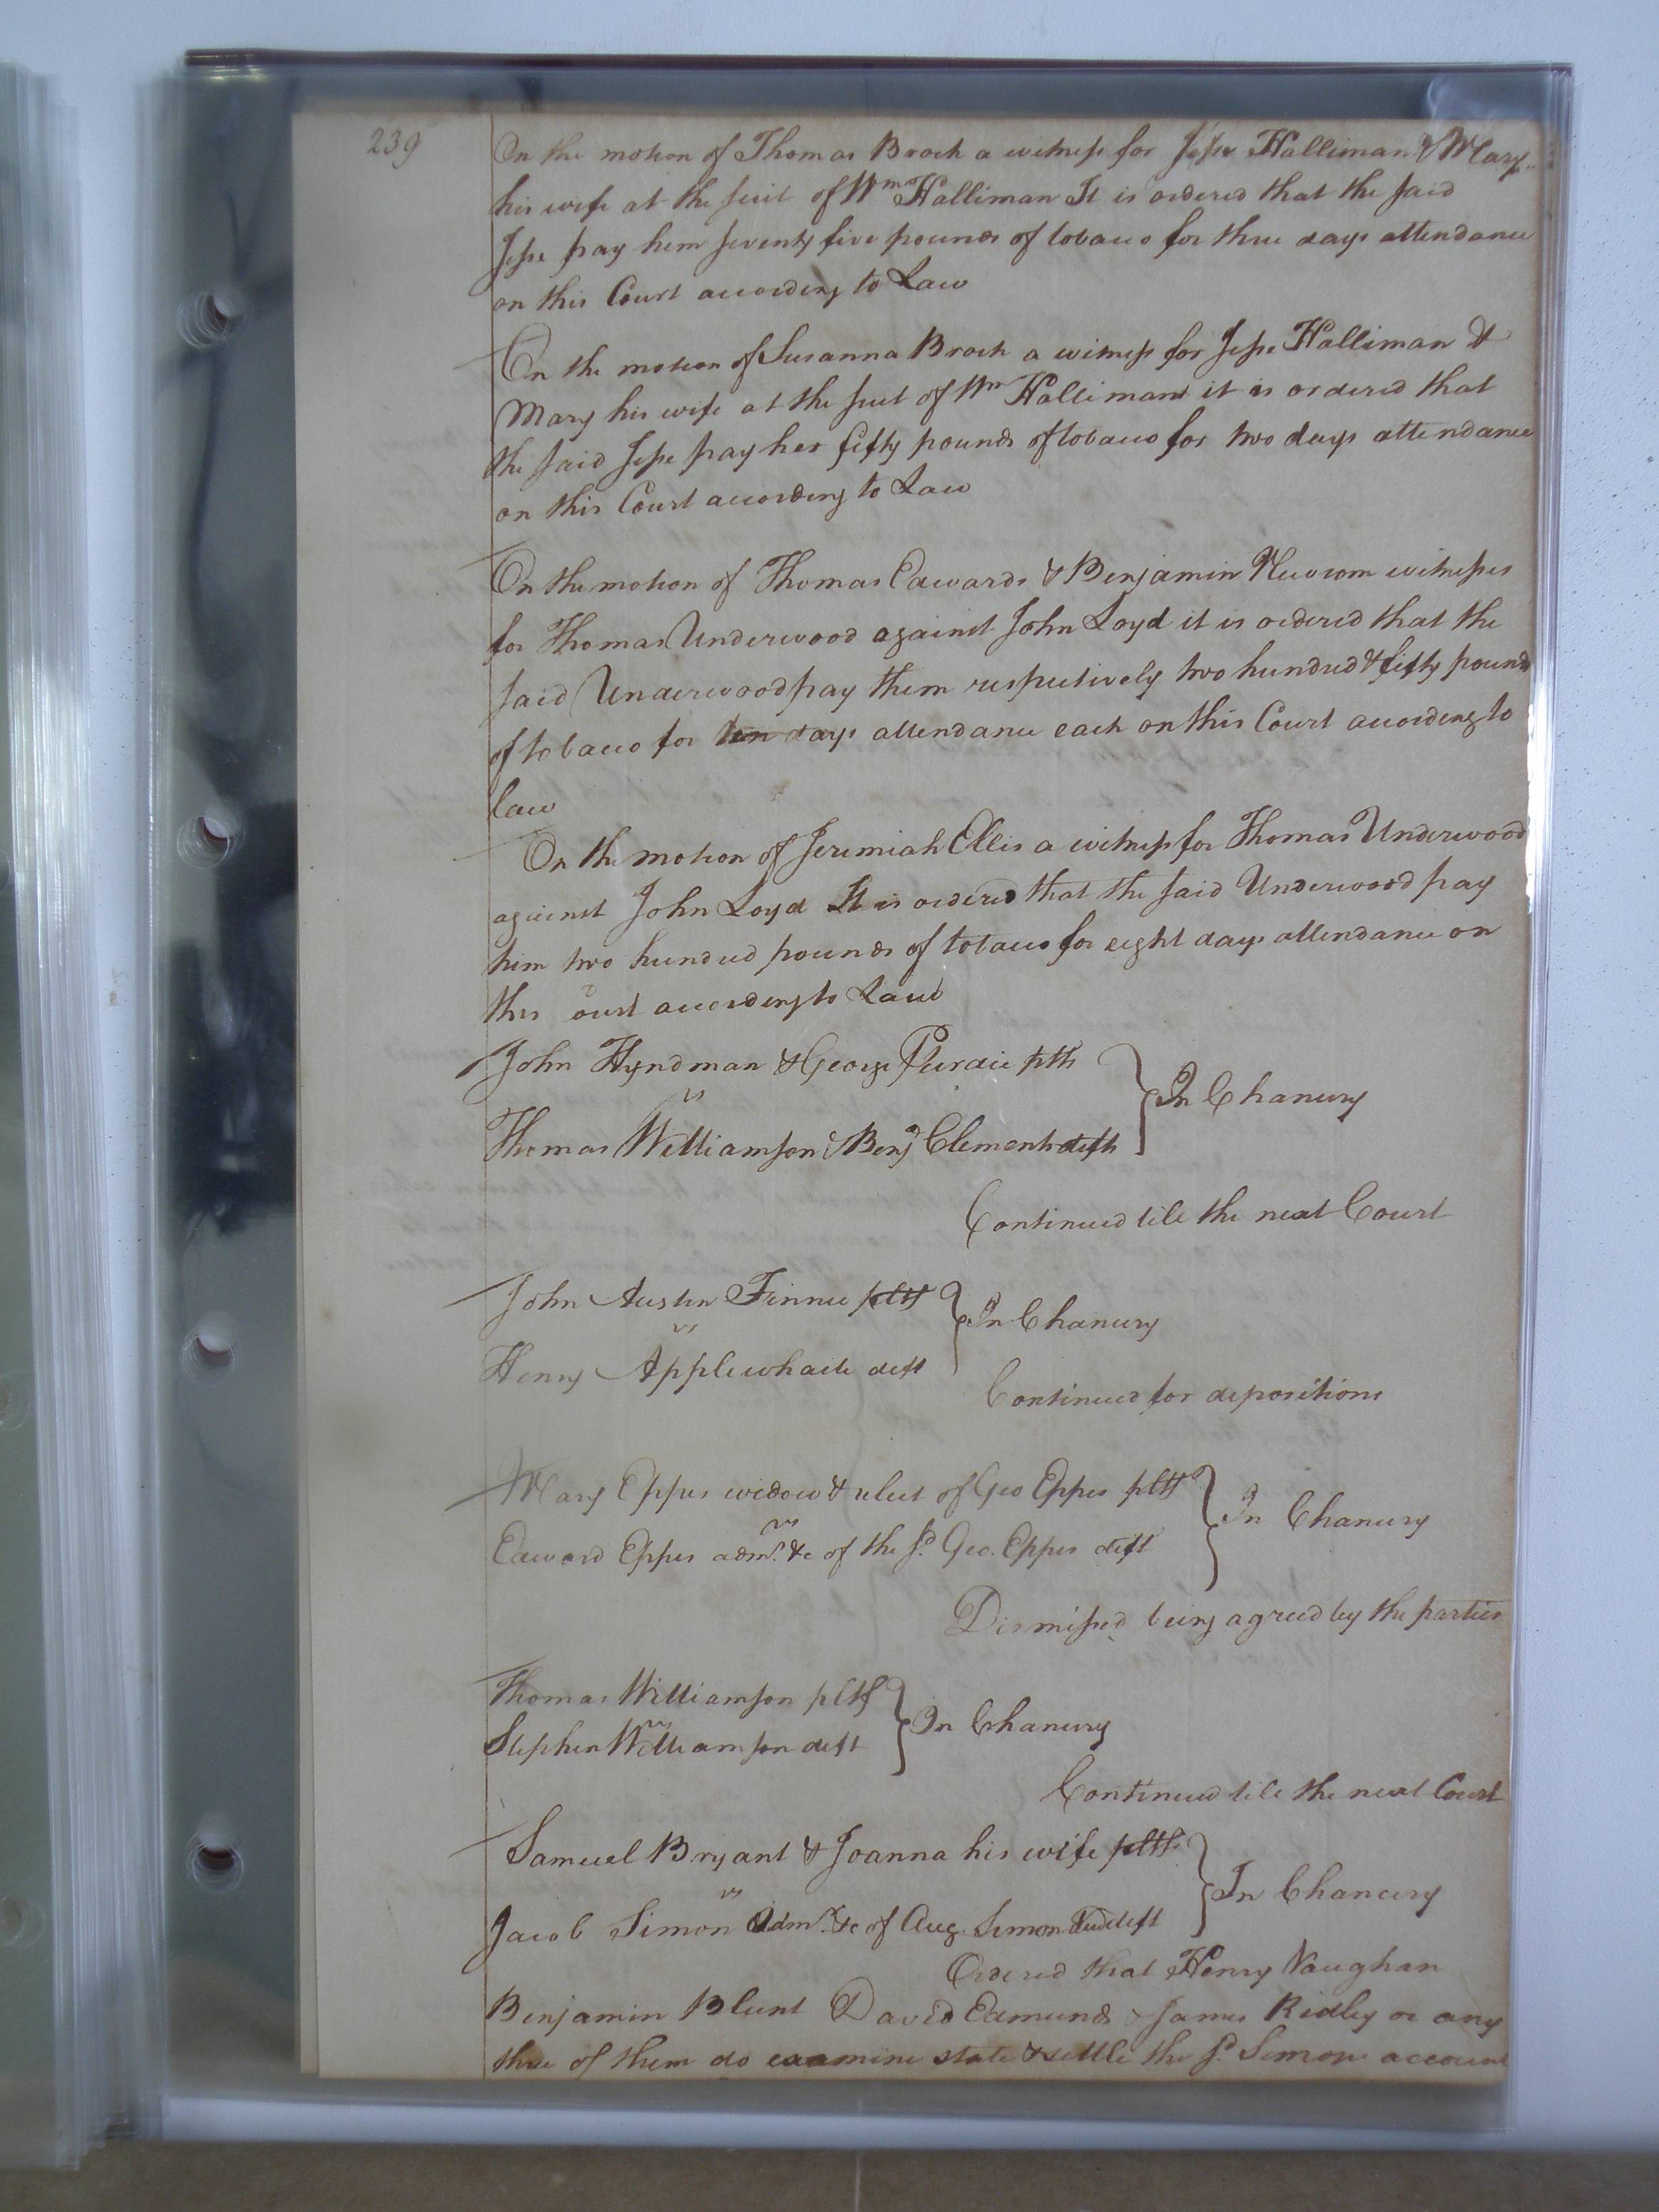 239
On the motion of Thomas Brock a witness for Jesse Halliman & Mary
his wife at the suit of Wm Halliman It is ordered that the said
Jesse pay him seventy five pounds of tobacco for three days attendance
on this Court according to Law
On the motion of Susanna Brock a witness for Jesse Halliman &
Mary his wife at the suit of Wm Halliman it is ordered that
the said Jesse pay her fifty pounds of tobacco for two days attendance
on this Court according to Law
On the motion of Thomas Edwards & Benjamin Newsom witnesses
for Thomas Underwood against John Loyd it is ordered that the
said Underwood pay them respectively two hundred & fifty pounds
of tobacco for ten days attendance each on this Court according to
law
On the motion of Jeremiah Ellis a witness for Thomas Underwood
against John Loyd It is ordered that the said Underwood pay
him two hundred pounds of tobacco for eight days attendance on
this Court according to Law
John Hyndman & George Purdie plts
vs
In Chancery
Thomas Williamson & Benj Clements defts
Continued till the next Court
John Austin Finnie pltf
vs
In Chancery
Henry Applewhaite deft
Continued for depositions
Mary Eppes widow & relict of Geo Eppes pltf
vs
In Chancery
Edward Eppes admr. &c of the sd. Geo. Eppes deft
Dismissed being agreed by the parties
Thomas Williamson pltf
vs
In Chancery
Stephen Williamson deft
Continued till the next Court
Samuel Bryant & Joanna his wife plts
vs
In Chancery
Jacob Simon Admr. &c of Aug. Simon deft
Ordered that Henry Vaughan
Benjamin Blunt David Edmunds & James Ridley or any
three of them do examine state & settle the sd. Simons account